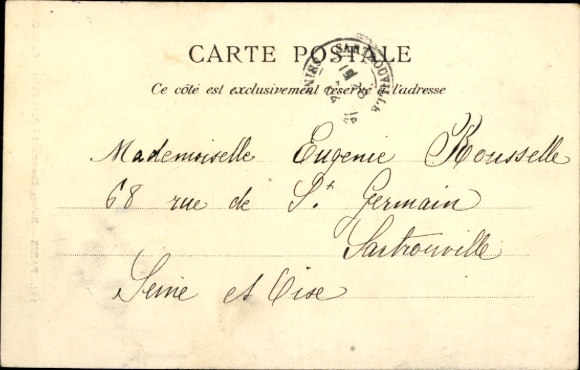 CARTE POSTALE
SARTROUVILLE
Ce côté est exclusivement réservé à l'adresse
Mademoiselle Eugenie Rousselle
68 rue de St Germain
Sartrouville
Seine et Oise